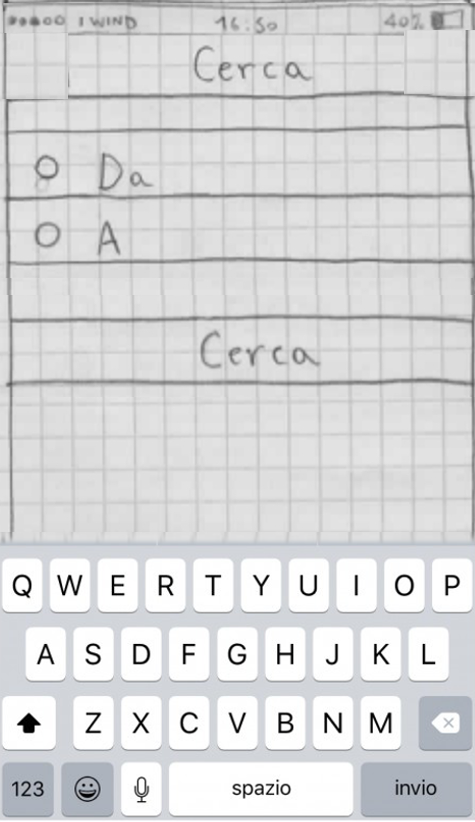 I WIND 16:50 40%
Cerca
Da
A
Cerca
Q W E R T Y U I O P
A S D F G H J K L
Z X C V B N M
123 spazio invio